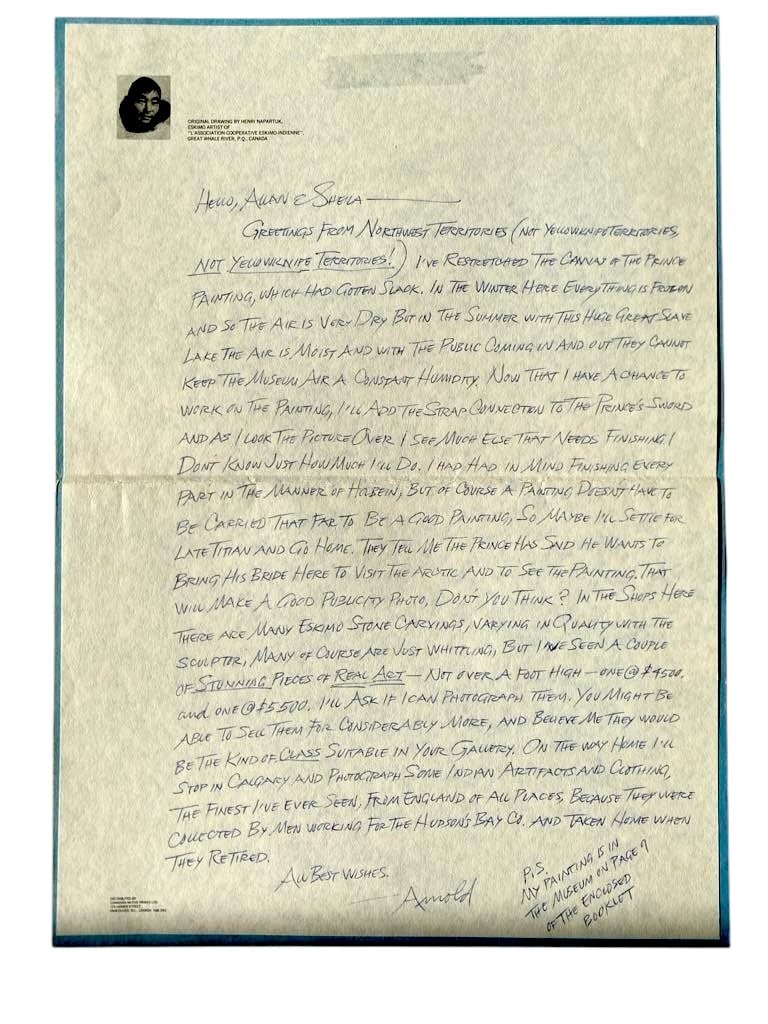 ORIGINAL DRAWING BY HENRY NAPARTUK,
ESKIMO ARTIST OF
"L'ASSOCIATION COOPERATIVE ESKIMO-INDIENNE",
GREAT WHALE RIVER, P.Q., CANADA
HELLO, ALLAN & SHEILA
GREETINGS FROM NORTHWEST TERRITORIES (NOT YELLOWKNIFE TERRITORIES,
NOT YELLOWKNIFE TERRITORIES!) I'VE RESTRETCHED THE CANVAS OF THE PRINCE
PAINTING, WHICH HAD GOTTEN SLACK. IN THE WINTER HERE EVERYTHING IS FROZEN
AND SO THE AIR IS VERY DRY BUT IN THE SUMMER WITH THIS HUGE GREAT SLAVE
LAKE THE AIR IS MOIST AND WITH THE PUBLIC COMING IN AND OUT THEY CANNOT
KEEP THE MUSEUM AIR A CONSTANT HUMIDITY. NOW THAT I HAVE A CHANCE TO
WORK ON THE PAINTING, I'LL ADD THE STRAP CONNECTION TO THE PRINCE'S SWORD
AND AS I LOOK THE PICTURE OVER I SEE MUCH ELSE THAT NEEDS FINISHING. I
DON'T KNOW JUST HOW MUCH I'LL DO. I HAD HAD IN MIND FINISHING EVERY
PART IN THE MANNER OF HOLBEIN, BUT OF COURSE A PAINTING DOESN'T HAVE TO
BE CARRIED THAT FAR TO BE A GOOD PAINTING, SO MAYBE I'LL SETTLE FOR
LATE TITIAN AND GO HOME. THEY TELL ME THE PRINCE HAS SAID HE WANTS TO
BRING HIS BRIDE HERE TO VISIT THE ARCTIC AND TO SEE THE PAINTING. THAT
WILL MAKE A GOOD PUBLICITY PHOTO, DON'T YOU THINK? IN THE SHOPS HERE
THERE ARE MANY ESKIMO STONE CARVINGS, VARYING IN QUALITY WITH THE
SCULPTOR, MANY OF COURSE ARE JUST WHITTLING, BUT I'VE SEEN A COUPLE
OF STUNNING PIECES OF REAL ART — NOT OVER A FOOT HIGH — ONE @ $4500.
and ONE @ $5500. I'LL ASK IF I CAN PHOTOGRAPH THEM. YOU MIGHT BE
ABLE TO SELL THEM FOR CONSIDERABLY MORE, AND BELIEVE ME THEY WOULD
BE THE KIND OF CLASS SUITABLE IN YOUR GALLERY. ON THE WAY HOME I'LL
STOP IN CALGARY AND PHOTOGRAPH SOME INDIAN ARTIFACTS AND CLOTHING,
THE FINEST I'VE EVER SEEN, FROM ENGLAND OF ALL PLACES, BECAUSE THEY WERE
COLLECTED BY MEN WORKING FOR THE HUDSON'S BAY CO. AND TAKEN HOME WHEN
THEY RETIRED.
ALL BEST WISHES.
— Arnold
P.S.
MY PAINTING IS IN
THE MUSEUM ON PAGE 9
OF THE ENCLOSED
BOOKLET
DISTRIBUTED BY
CANADIAN NATIVE PRINTS LTD.
VANCOUVER, B.C., CANADA